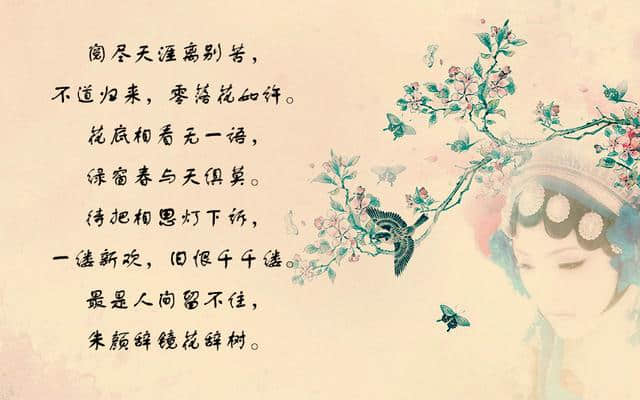 阅尽天涯离别苦，
不道归来，零落花如许。
花底相看无一语，
绿窗春与天俱莫。
待把相思灯下诉，
一缕新欢，旧恨千千缕。
最是人间留不住，
朱颜辞镜花辞树。